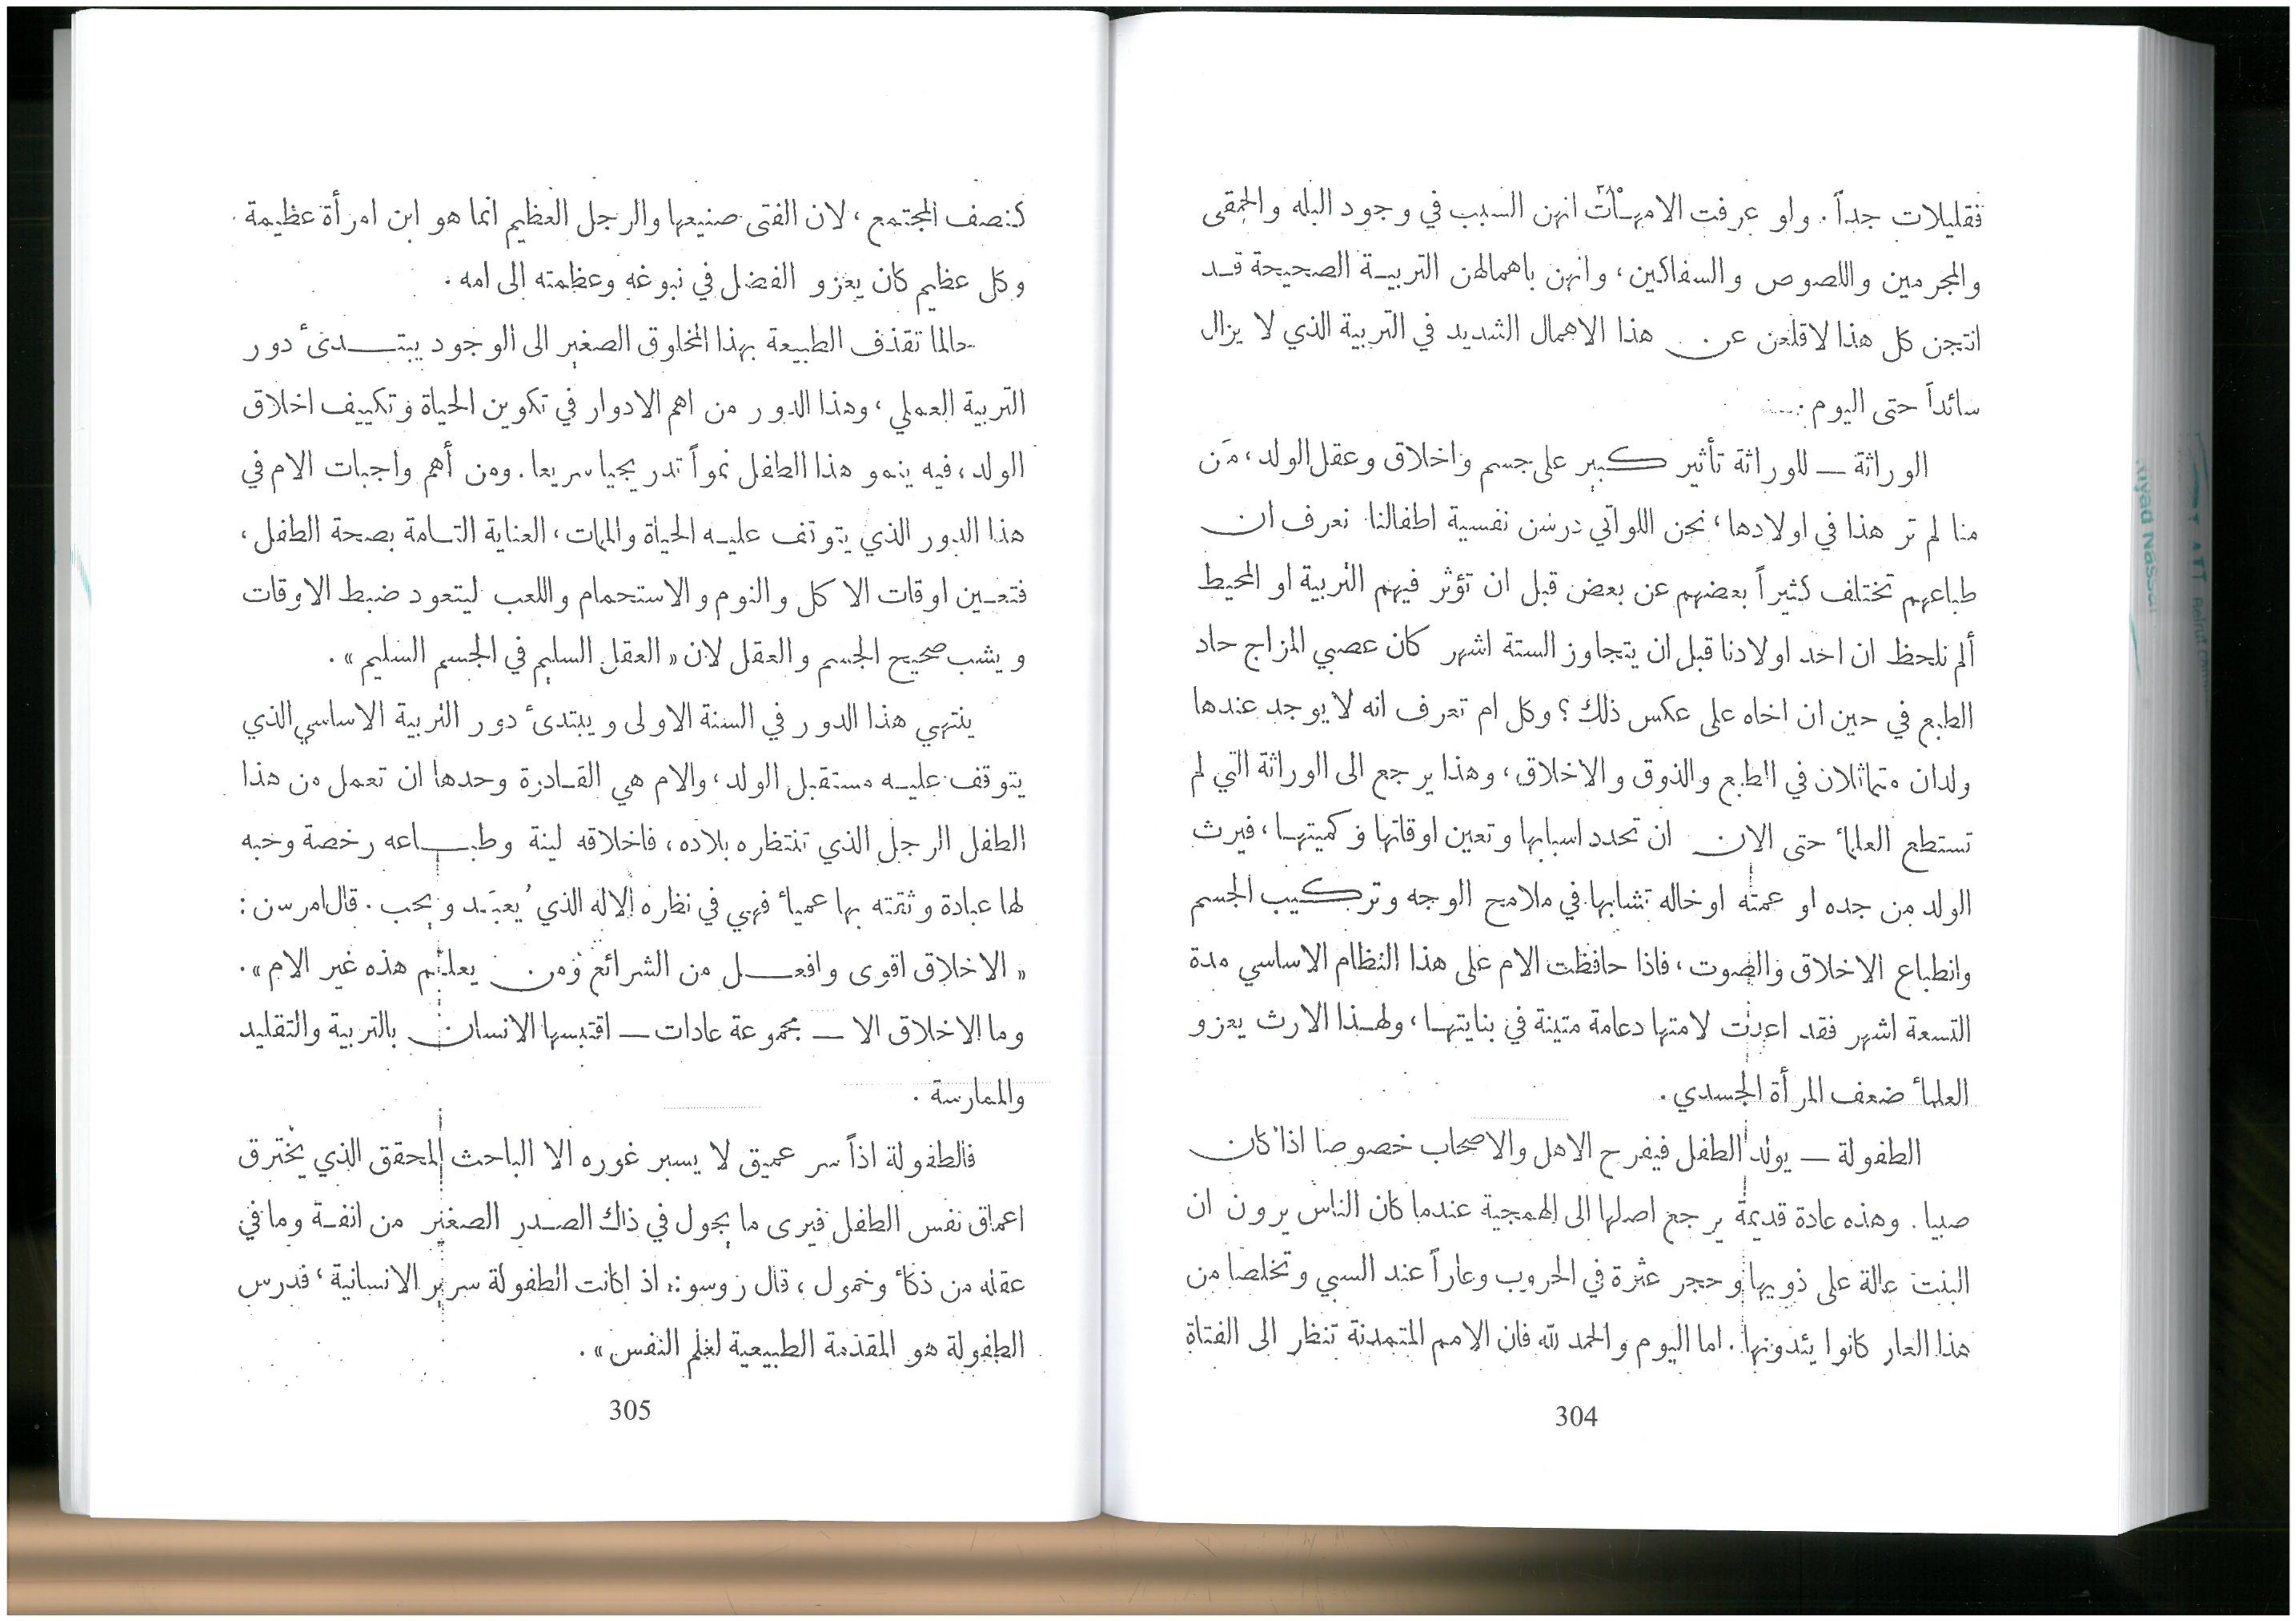 فقليلات جداً. ولو عرفت الامهات انهن السبب في وجود البله والحمقى
والمجرمين واللصوص والسفاكين، وانهن باهمالهن التربية الصحيحة قد
انتجن كل هذا لاقلعن عن هذا الاهمال الشديد في التربية الذي لا يزال
سائداً حتى اليوم.
الوراثة — للوراثة تأثير كبير على جسم واخلاق وعقل الولد، مَن
منا لم تر هذا في اولادها، نحن اللواتي درسن نفسية اطفالنا نعرف ان
طباعهم تختلف كثيراً بعضهم عن بعض قبل ان تؤثر فيهم التربية او المحيط
ألم نلحظ ان احد اولادنا قبل ان يتجاوز الستة اشهر كان عصبي المزاج حاد
الطبع في حين ان اخاه على عكس ذلك؟ وكل ام تعرف انه لا يوجد عندها
ولدان متماثلان في الطبع والذوق والاخلاق، وهذا يرجع الى الوراثة التي لم
تستطع العلماء حتى الان ان تحدد اسبابها وتعين اوقاتها وكميتها، فيرث
الولد من جده او عمته او خاله تشابها في ملامح الوجه وتركيب الجسم
وانطباع الاخلاق والصوت، فاذا حافظت الام على هذا النظام الاساسي مدة
التسعة اشهر فقد اعدت لامتها دعامة متينة في بنايتها، ولهذا الارث يعزو
العلماء ضعف المرأة الجسدي.
الطفولة — يولد الطفل فيفرح الاهل والاصحاب خصوصا اذا كان
صبيا. وهذه عادة قديمة يرجع اصلها الى الهمجية عندما كان الناس يرون ان
البنت عالة على ذويها وحجر عثرة في الحروب وعاراً عند السبي وتخلصا من
هذا العار كانوا يئدونها. اما اليوم والحمد لله فان الامم المتمدنة تنظر الى الفتاة
304
كنصف المجتمع، لان الفتى صنيعها والرجل العظيم انما هو ابن امرأة عظيمة.
وكل عظيم كان يعزو الفضل في نبوغه وعظمته الى امه.
حالما تقذف الطبيعة بهذا المخلوق الصغير الى الوجود يبتدئ دور
التربية العملي، وهذا الدور من اهم الادوار في تكوين الحياة وتكييف اخلاق
الولد، فيه ينمو هذا الطفل نمواً تدريجيا سريعا. ومن أهم واجبات الام في
هذا الدور الذي يتوقف عليه الحياة والممات، العناية التامة بصحة الطفل،
فتعين اوقات الاكل والنوم والاستحمام واللعب ليتعود ضبط الاوقات
ويشب صحيح الجسم والعقل لان «العقل السليم في الجسم السليم».
ينتهي هذا الدور في السنة الاولى ويبتدئ دور التربية الاساسي الذي
يتوقف عليه مستقبل الولد، والام هي القادرة وحدها ان تعمل من هذا
الطفل الرجل الذي تنتظره بلاده، فاخلاقه لينة وطباعه رخصة وحبه
لها عبادة وثقته بها عمياء فهي في نظره الاله الذي يُعبَد ويحب. قال امرسن:
«الاخلاق اقوى وافعل من الشرائع ومن يعلم هذه غير الام».
وما الاخلاق الا — مجموعة عادات — اقتبسها الانسان بالتربية والتقليد
والممارسة.
فالطفولة اذاً سر عميق لا يسبر غوره الا الباحث المحقق الذي يخترق
اعماق نفس الطفل فيرى ما يجول في ذاك الصدر الصغير من انفة وما في
عقله من ذكاء وخمول، قال روسو: اذا كانت الطفولة سرير الانسانية، فدرس
الطفولة هو المقدمة الطبيعية لعلم النفس».
305